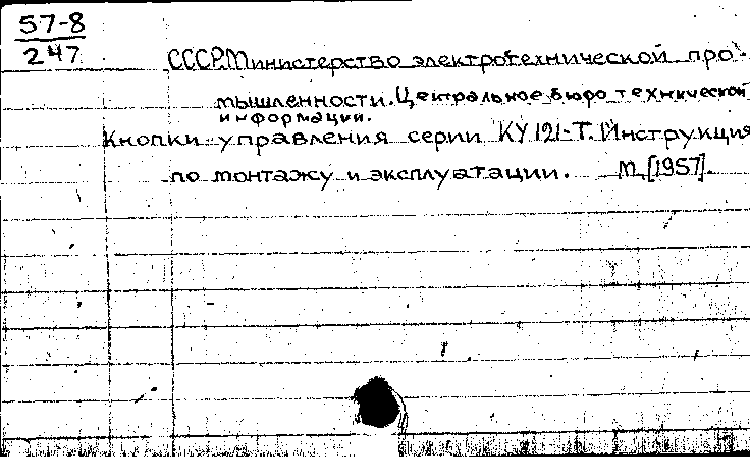 57-8
247
СССР. Министерство электротехнической про-
мышленности. Центральное бюро технической
информации.
Кнопки управления серии КУ 121-Т. Инструкция
по монтажу и эксплуатации. М, [1957].